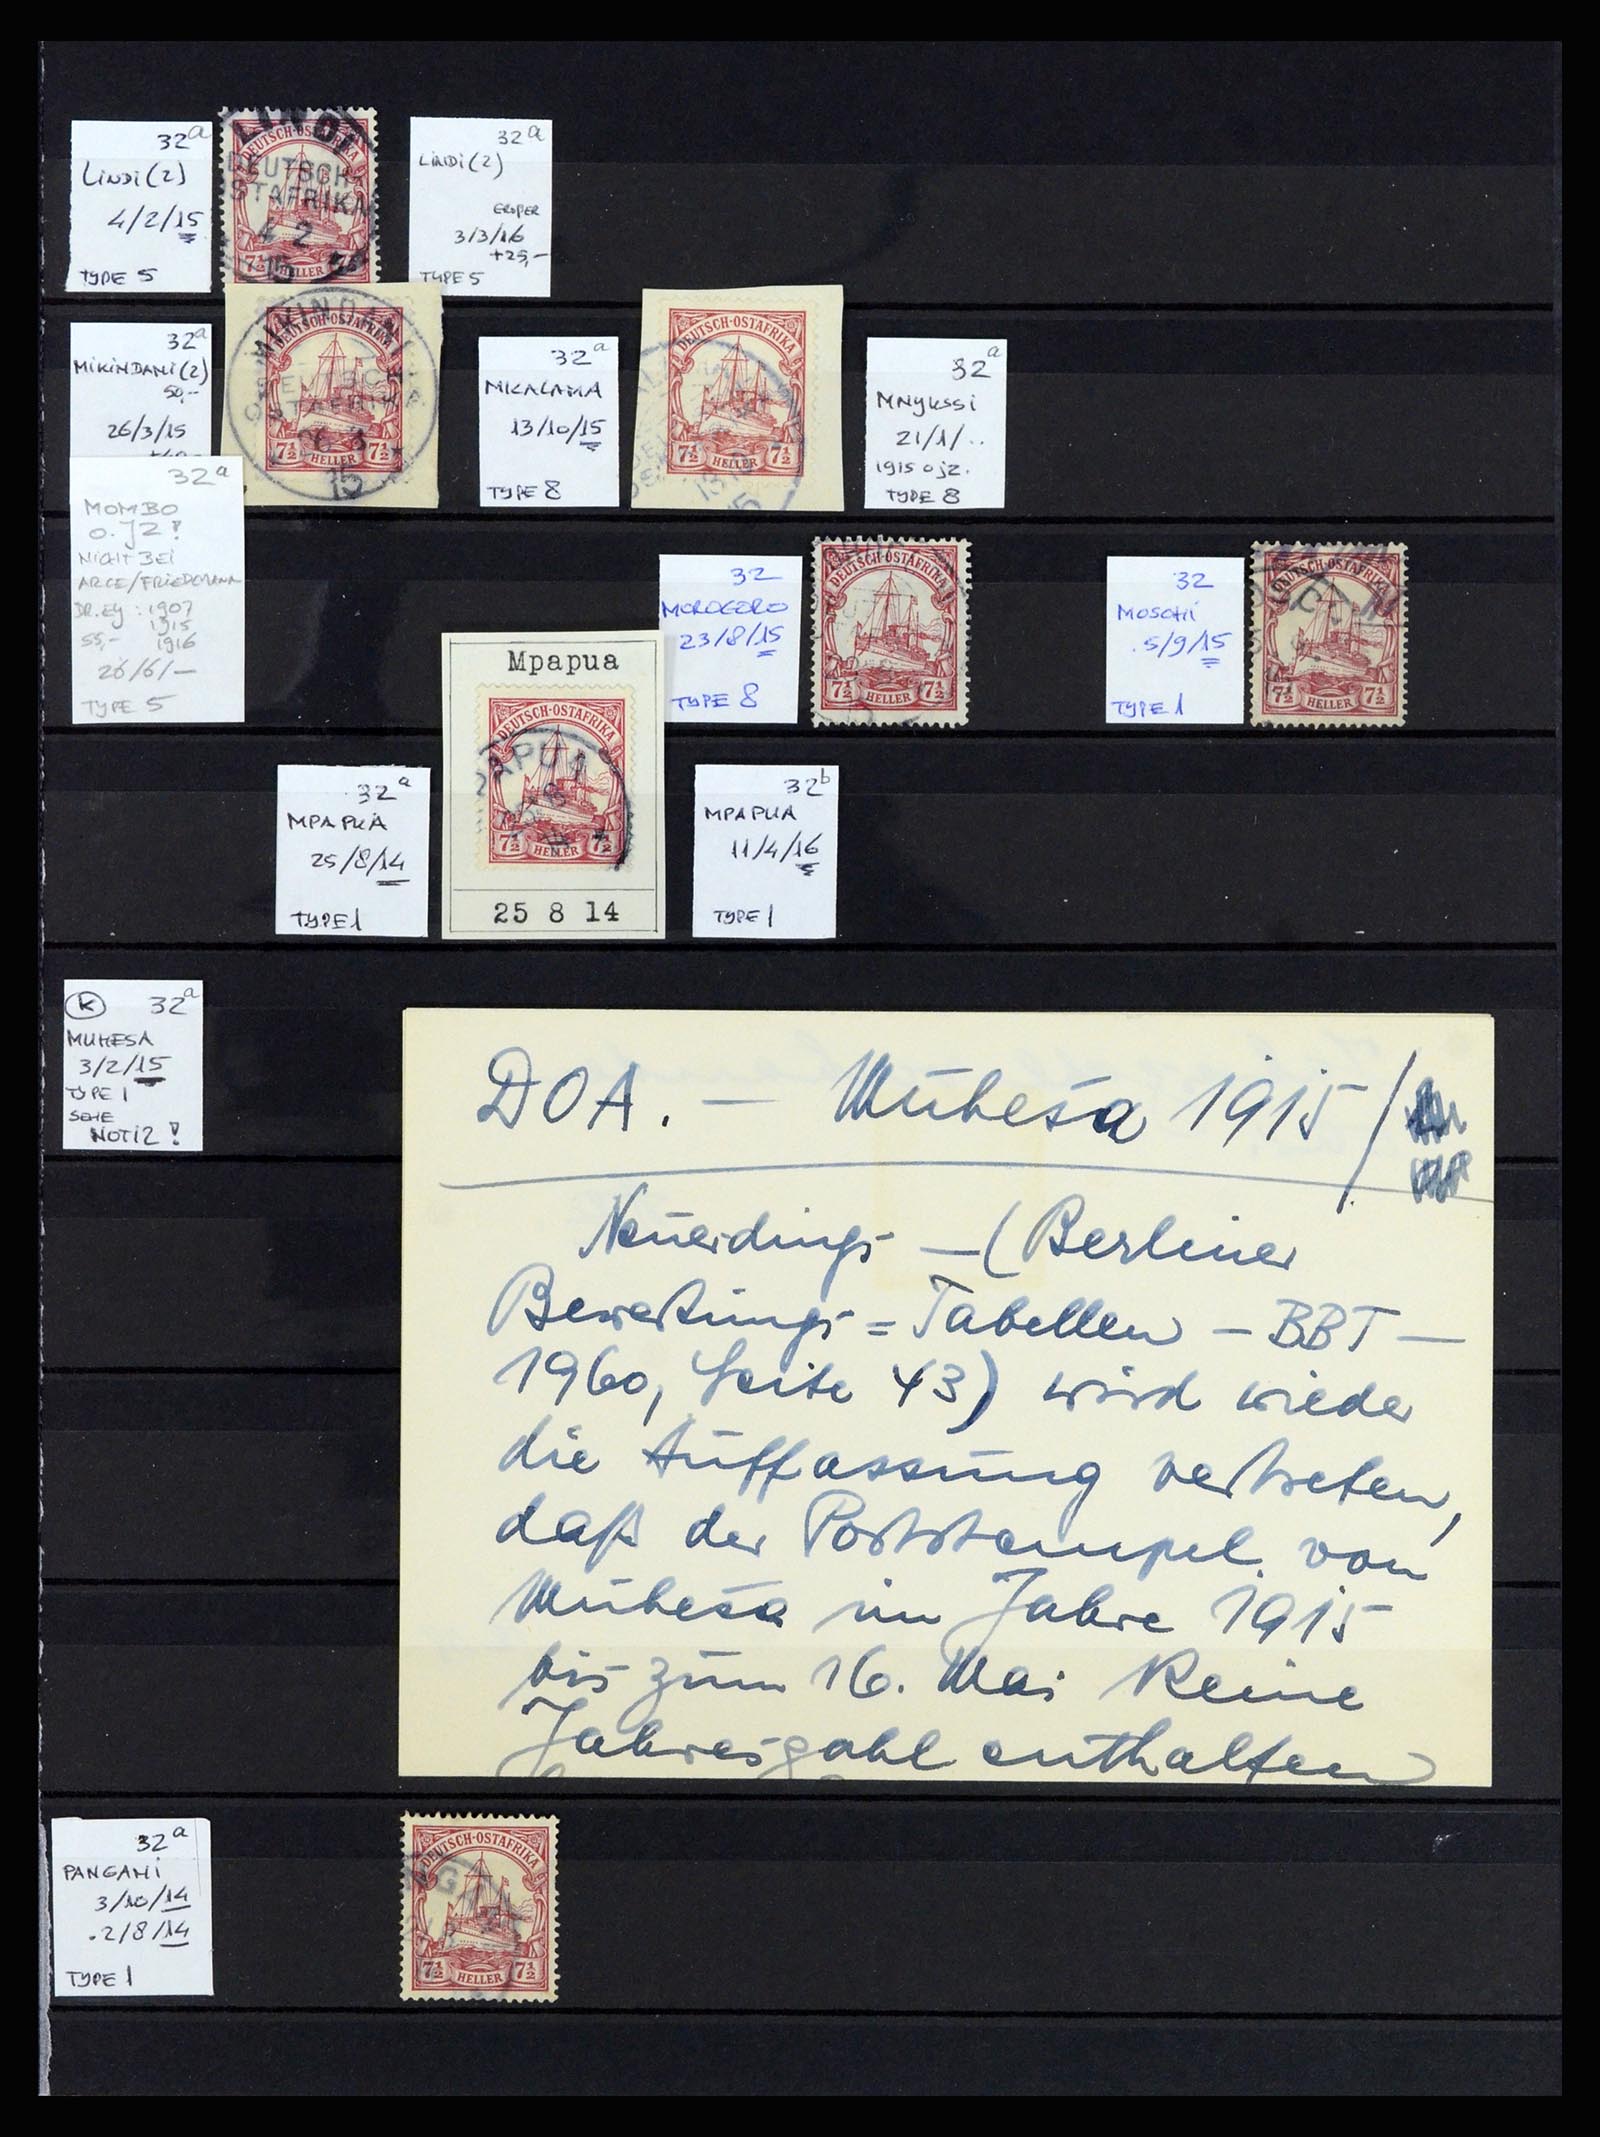 32a
LINDI (2)
4/2/15
TYPE 5
LINDI
DEUTSCH-OSTAFRIKA
DEUTSCH-
OSTAFRIKA
4 2
15
7½ HELLER 7½
32a
LINDI (2)
3/3/16
+25,-
TYPE 5
32a
MIKINDANI (2)
50,-
26/3/15
MIKINDANI
DEUTSCH-OSTAFRIKA
26 3
15
7½ HELLER 7½
32a
MKALAMA
13/10/15
TYPE 8
DEUTSCH-OSTAFRIKA
13 10
15
7½ 7½
32a
MNYUSSI
21/1/..
1915 o JZ.
TYPE 8
32a
MOMBO
o. JZ!
NICHT BEI
ARGE/FRIEDEMANN
DR. EY : 1907
1915
55,- 1916
26/6/—
TYPE 5
32
MOROGORO
23/8/15
TYPE 8
DEUTSCH-OSTAFRIKA
7½ HELLER 7½
32
MOSCHI
.5/9/15
TYPE 1
DEUTSCH-OSTAFRIKA
7½ HELLER 7½
32a
MPAPUA
25/8/14
TYPE 1
Mpapua
DEUTSCH-OSTAFRIKA
MPAPUA
25 8
14
7½ HELLER 7½
25 8 14
32b
MPAPUA
11/4/16
TYPE 1
K 32a
MUHESA
3/2/15
TYPE 1
SEHE
NOTIZ!
DOA. — Muhesa 1915 /
Neuerdings — (Berliner
Bewertungs = Tabellen — BBT —
1960, Seite 43) wird wieder
die Auffassung vertreten,
daß der Poststempel von
Muhesa im Jahre 1915
bis zum 16. Mai keine
Jahreszahl enthalten
32a
PANGANI
3/10/14
.2/8/14
TYPE 1
DEUTSCH-OSTAFRIKA
7½ HELLER 7½